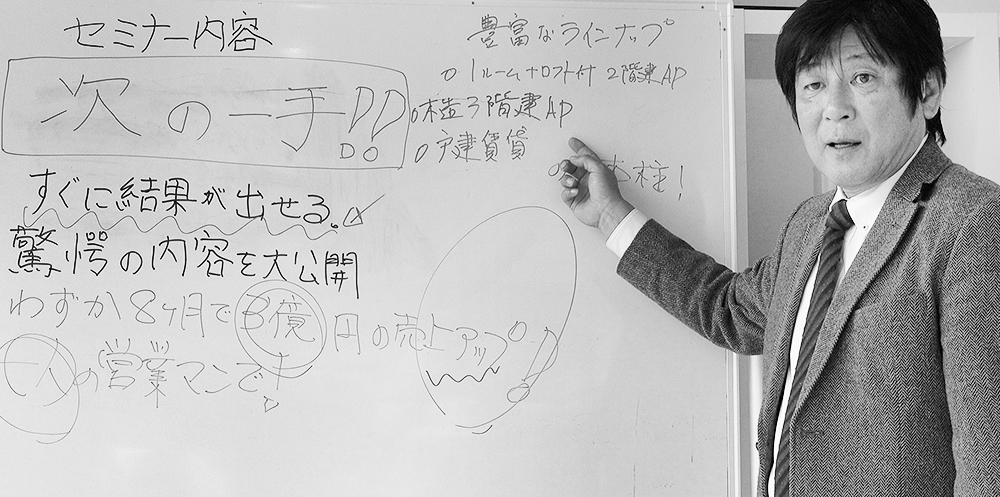 セミナー内容
次の一手!!
すぐに結果が出せる。
驚愕の内容を大公開
わずか8ヶ月で3億円の売上アップ!!
一人の営業マンで!
豊富なラインナップ
○1ルーム+ロフト付2階建AP
○木造3階建AP
○戸建賃貸
柱!